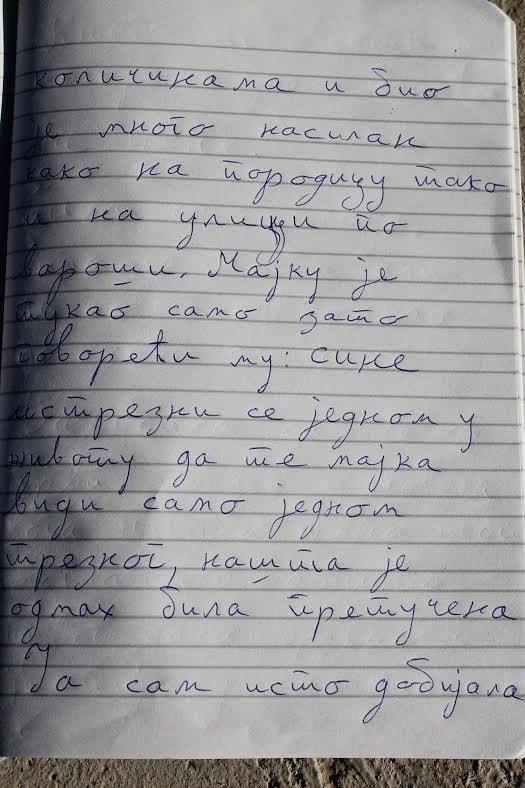 количинама и био
је много насилан
како на породицу тако
и на улици по
вароши. Мајку је
тукао само зато
говорећи му: сине
истрезни се једном у
животу да те мајка
види само једном
трезног, нашта је
одмах била претучена
Ја сам исто добијала